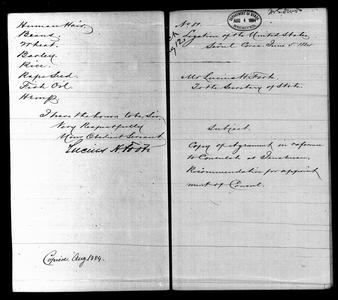 Human Hair.
Beans
Wheat.
Barley
Rice
Rape Seed.
Fish Oil.
Hemp.
I have the honor to be, Sir,
Very Respectfully
Your Obedient Servant
Lucius H. Foote
Copied Aug 1884.
Legation of the United States
Seoul Corea June 5 1884
Mr Lucius H. Foote
To the Secretary of State.
Subject.
Copy of Agreement in reference
to Consulate at
Recommendation for appoint
ment of Consul.